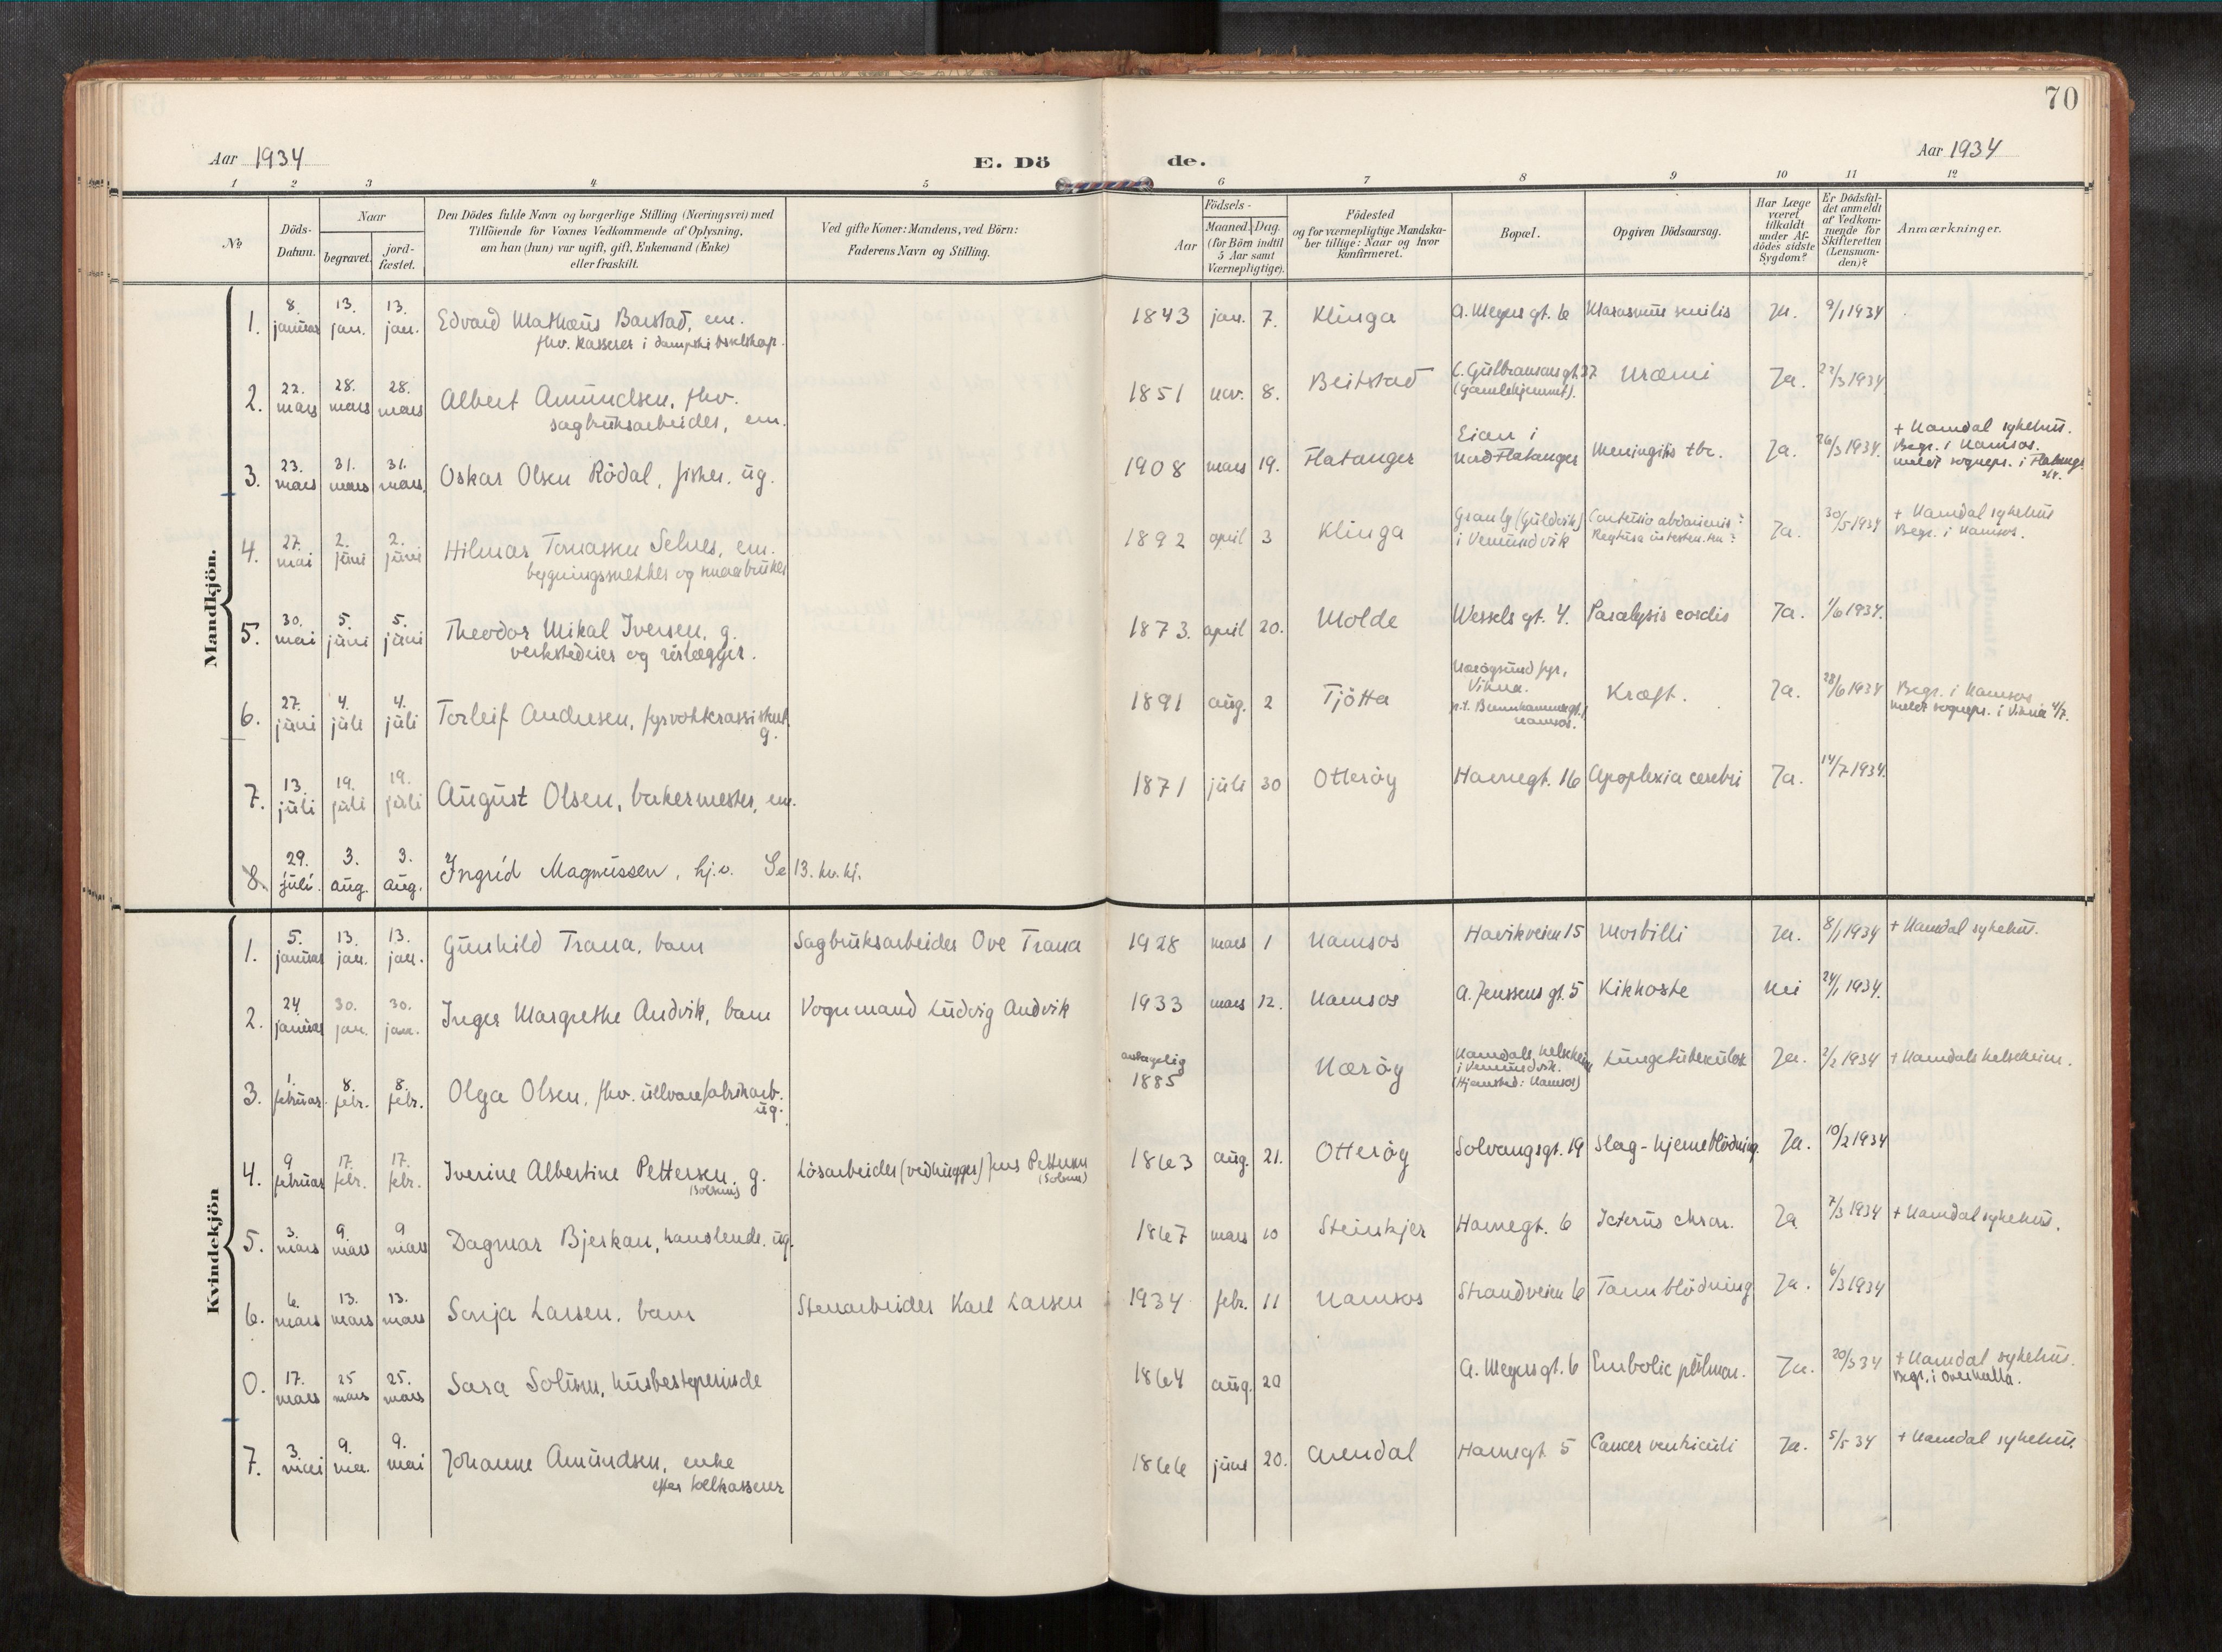 70
Aar 1934
E. Dö de.
Aar 1934
1 2 3 4 5 6 7 8 9 10 11 12
№
Döds-
Datum.
Naar
begravet.
jord-
fæstet.
Den Dödes fulde Navn og borgerlige Stilling (Næringsvei) med
Tilföiende for Voxnes Vedkommende af Oplysning,
om han (hun) var ugift, gift, Enkemand (Enke)
eller fraskilt.
Ved gifte Koner: Mandens, ved Börn:
Faderens Navn og Stilling.
Födsels-
Aar
Maaned. Dag.
(for Börn indtil
5 Aar samt
Værnepligtige).
Födested
og for værnepligtige Mandska-
ber tillige: Naar og hvor
konfirmeret.
Bopæl.
Opgiven Dödsaarsag.
Har Læge
været
tilkaldt
under Af-
dödes sidste
Sygdom?
Er Dödsfal-
det anmeldt
af Vedkom-
mende for
Skifteretten
(Lensman-
den)?
Anmærkninger.
Mandkjön.
1. 8. januar 13. jan. 13. jan. Edvard Mathæus Barstad, em.
fhv. kasserer i dampskibsselskap.
1843 jan. 7. Klinga A. Meyers gt. 6 Marasmus senilis Ja. 9/1 1934
2. 22. mars 28. mars 28. mars Albert Amundsen, fhv.
sagbruksarbeider, em.
1851 nov. 8. Beitstad C. Gulbransons gt. 27
(Gamlehjemmet). Uræmi Ja. 22/3 1934
3. 23. mars 31. mars 31. mars. Oskar Olsen Rödal, fisker, ug.
1908 mars 19. Flatanger Eian i
Nord Flatanger Meningitis tbc. Ja. 26/3 1934. + Namdal sykehus.
Begr. i Namsos.
meldt sognepr. i Flatanger
4. 27. mai 2. juni 2. juni Hilmar Tomassen Selnes, em.
bygningssnekker og smaabruker
1892 april 3 Klinga Granly (Guldvik)
i Vemundvik Contusio abdominis:
Ruptura intestin. Ja. 30/5 1934 + Namdal sykehus
Begr. i Namsos.
5. 30. mai 5. juni 5. juni Theodor Mikal Iversen, g.
verkstedeier og rörlægger.
1873. april 20. Molde Wessels gt. 4. Paralysis cordis Ja. 1/6 1934.
6. 27. juni 4. juli 4. juli Torleif Andresen, fyrvokterassistent
g.
1891 aug. 2 Tjötta Nærögsund fyr,
Vikna.
p.t.
Namsos. Kræft. Ja. 28/6 1934 Begr. i Namsos
meldt sognepr. i Vikna 4/7.
7. 13. juli 19. juli 19. juli August Olsen, bakermester, em.
1871 juli 30 Otteröy Havnegt. 16 Apoplexia cerebri Ja. 14/7 1934.
8. 29. juli. 3. aug. 3. aug. Ingrid Magnussen, hj.v. Se 13. kv.kj.
Kvindekjön
1. 5. januar 13. jan. 13. jan. Gunhild Trana, barn Sagbruksarbeider Ove Trana
1928 mars 1 Namsos Havikveien 15 Morbilli Ja. 8/1 1934 + Namdal sykehus.
2. 24. januar 30. jan. 30. jan. Inger Margrethe Andvik, barn Vognmand Ludvig Andvik
1933 mars 12. Namsos A. Jenssens gt. 5 Kikhoste Nei 24/1 1934.
3. 1. februar. 8. febr. 8. febr. Olga Olsen, fhv. ullvarefabrikarb.
ug.
antagelig
1885 Næröy Namdals helseheim
i Vemundvik.
(Hjemsted: Namsos) Lungetuberkulose Ja. 2/2 1934 + Namdals helseheim.
4. 9 februar 17. febr. 17. febr. Iverine Albertine Pettersen, g. Lösarbeider (vedhugger) Jens Pettersen
1863 aug. 21. Otteröy Solvangsgt. 19 Slag - hjerneblödning. Ja. 10/2 1934
5. 3. mars 9. mars 9 mars Dagmar Bjerkan, handlende. ug.
1867 mars 10 Steinkjer Havnegt. 6 Icterus chron. Ja 7/3 1934 + Namdal sykehus.
6. 6. mars 13. mars 13. mars Sonja Larsen, barn Stenarbeider Karl Larsen
1934 febr. 11 Namsos Strandveien 6 Tarmblödning Ja. 6/3 1934
0. 17. mars 25 mars 25. mars Sara Solum, husbestyrerinde
1864 aug. 20 A. Meyersgt. 6 Embolie pulmon. Ja. 20/3 34 + Namdal sykehus.
Begr. i Overhalla.
7. 3. mai 9. mai 9. mai Johanne Amundsen, enke
efter tolkasserer
1866 juni 20. Arendal Havnegt 5 Cancer ventriculi Ja. 5/5 34 + Namdal sykehus.